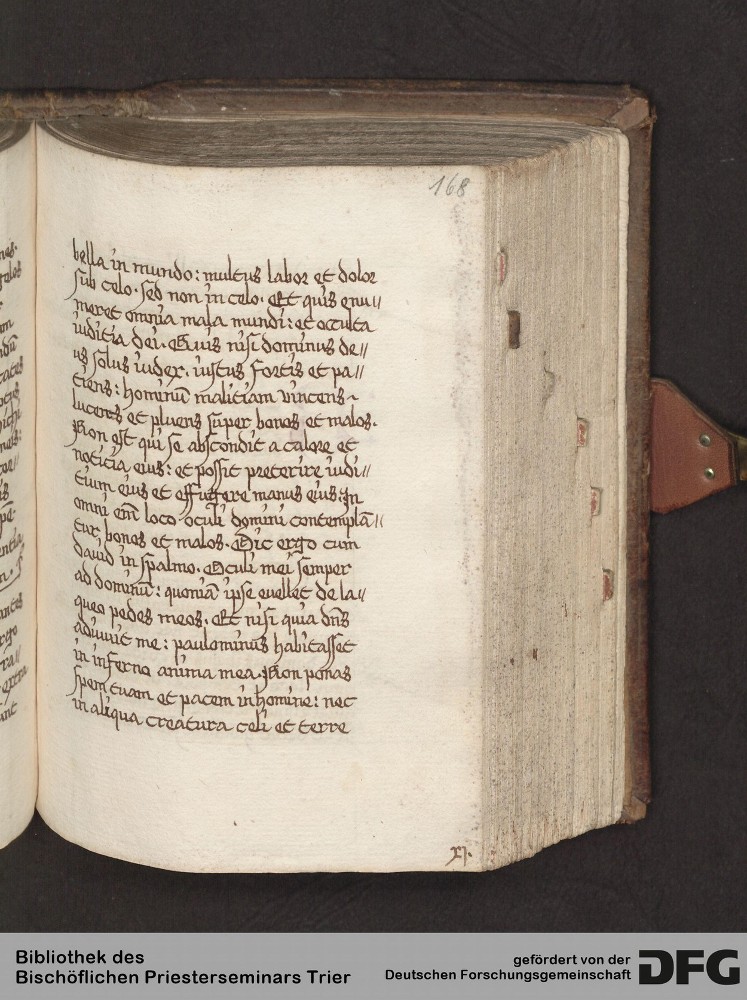 168
bella in mundo: multus labor et dolor
sub celo. Sed non in celo. Et quis enu//
meret omnia mala mundi: et occulta
iuditia dei. Quis nisi dominus de//
us solus iudex. iustus fortis et pa//
tiens: hominū malitiam vincens~
lucens et pluens super bonos et malos.
Non est qui se abscondit a calore et
notitia eius: et possit preterire iudi//
tium eius et effugere manus eius: In
omni em̄ loco oculi domini contemplā//
tur bonos et malos. Dic ergo cum
dauid in spalmo. Oculi mei semper
ad dominū: quoniā ipse euellet de la//
queo pedes meos. Et nisi quia dn̄s
adiuuit me: paulominus habitasset
in inferno anima mea. Non ponas
spem tuam et pacem in homine: nec
in aliqua creatura celi et terre
Bibliothek des
Bischöflichen Priesterseminars Trier
gefördert von der
Deutschen Forschungsgemeinschaft
DFG